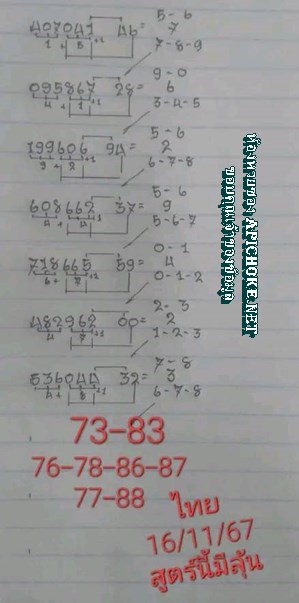 5-6
407041 46= 7
1 + 5 +1
7-8-9
9-0
095867 28= 6
4 + 1 +1
3-4-5
5-6
199606 94= 2
9 + 2
6-7-8
5-6
608662 37= 9
4 + 4
5-6-7
0-1
718665 59= 4
6+ 7
0-1-2
2-3
482962 00= 2
4 7 +1
1-2-3
7-8
536044 32= 3
4 + 8 +1
6-7-8
73-83
76-78-86-87
77-88
ไทย
16/11/67
สูตร์นี้มีลุ้น
APICHOKE.NET